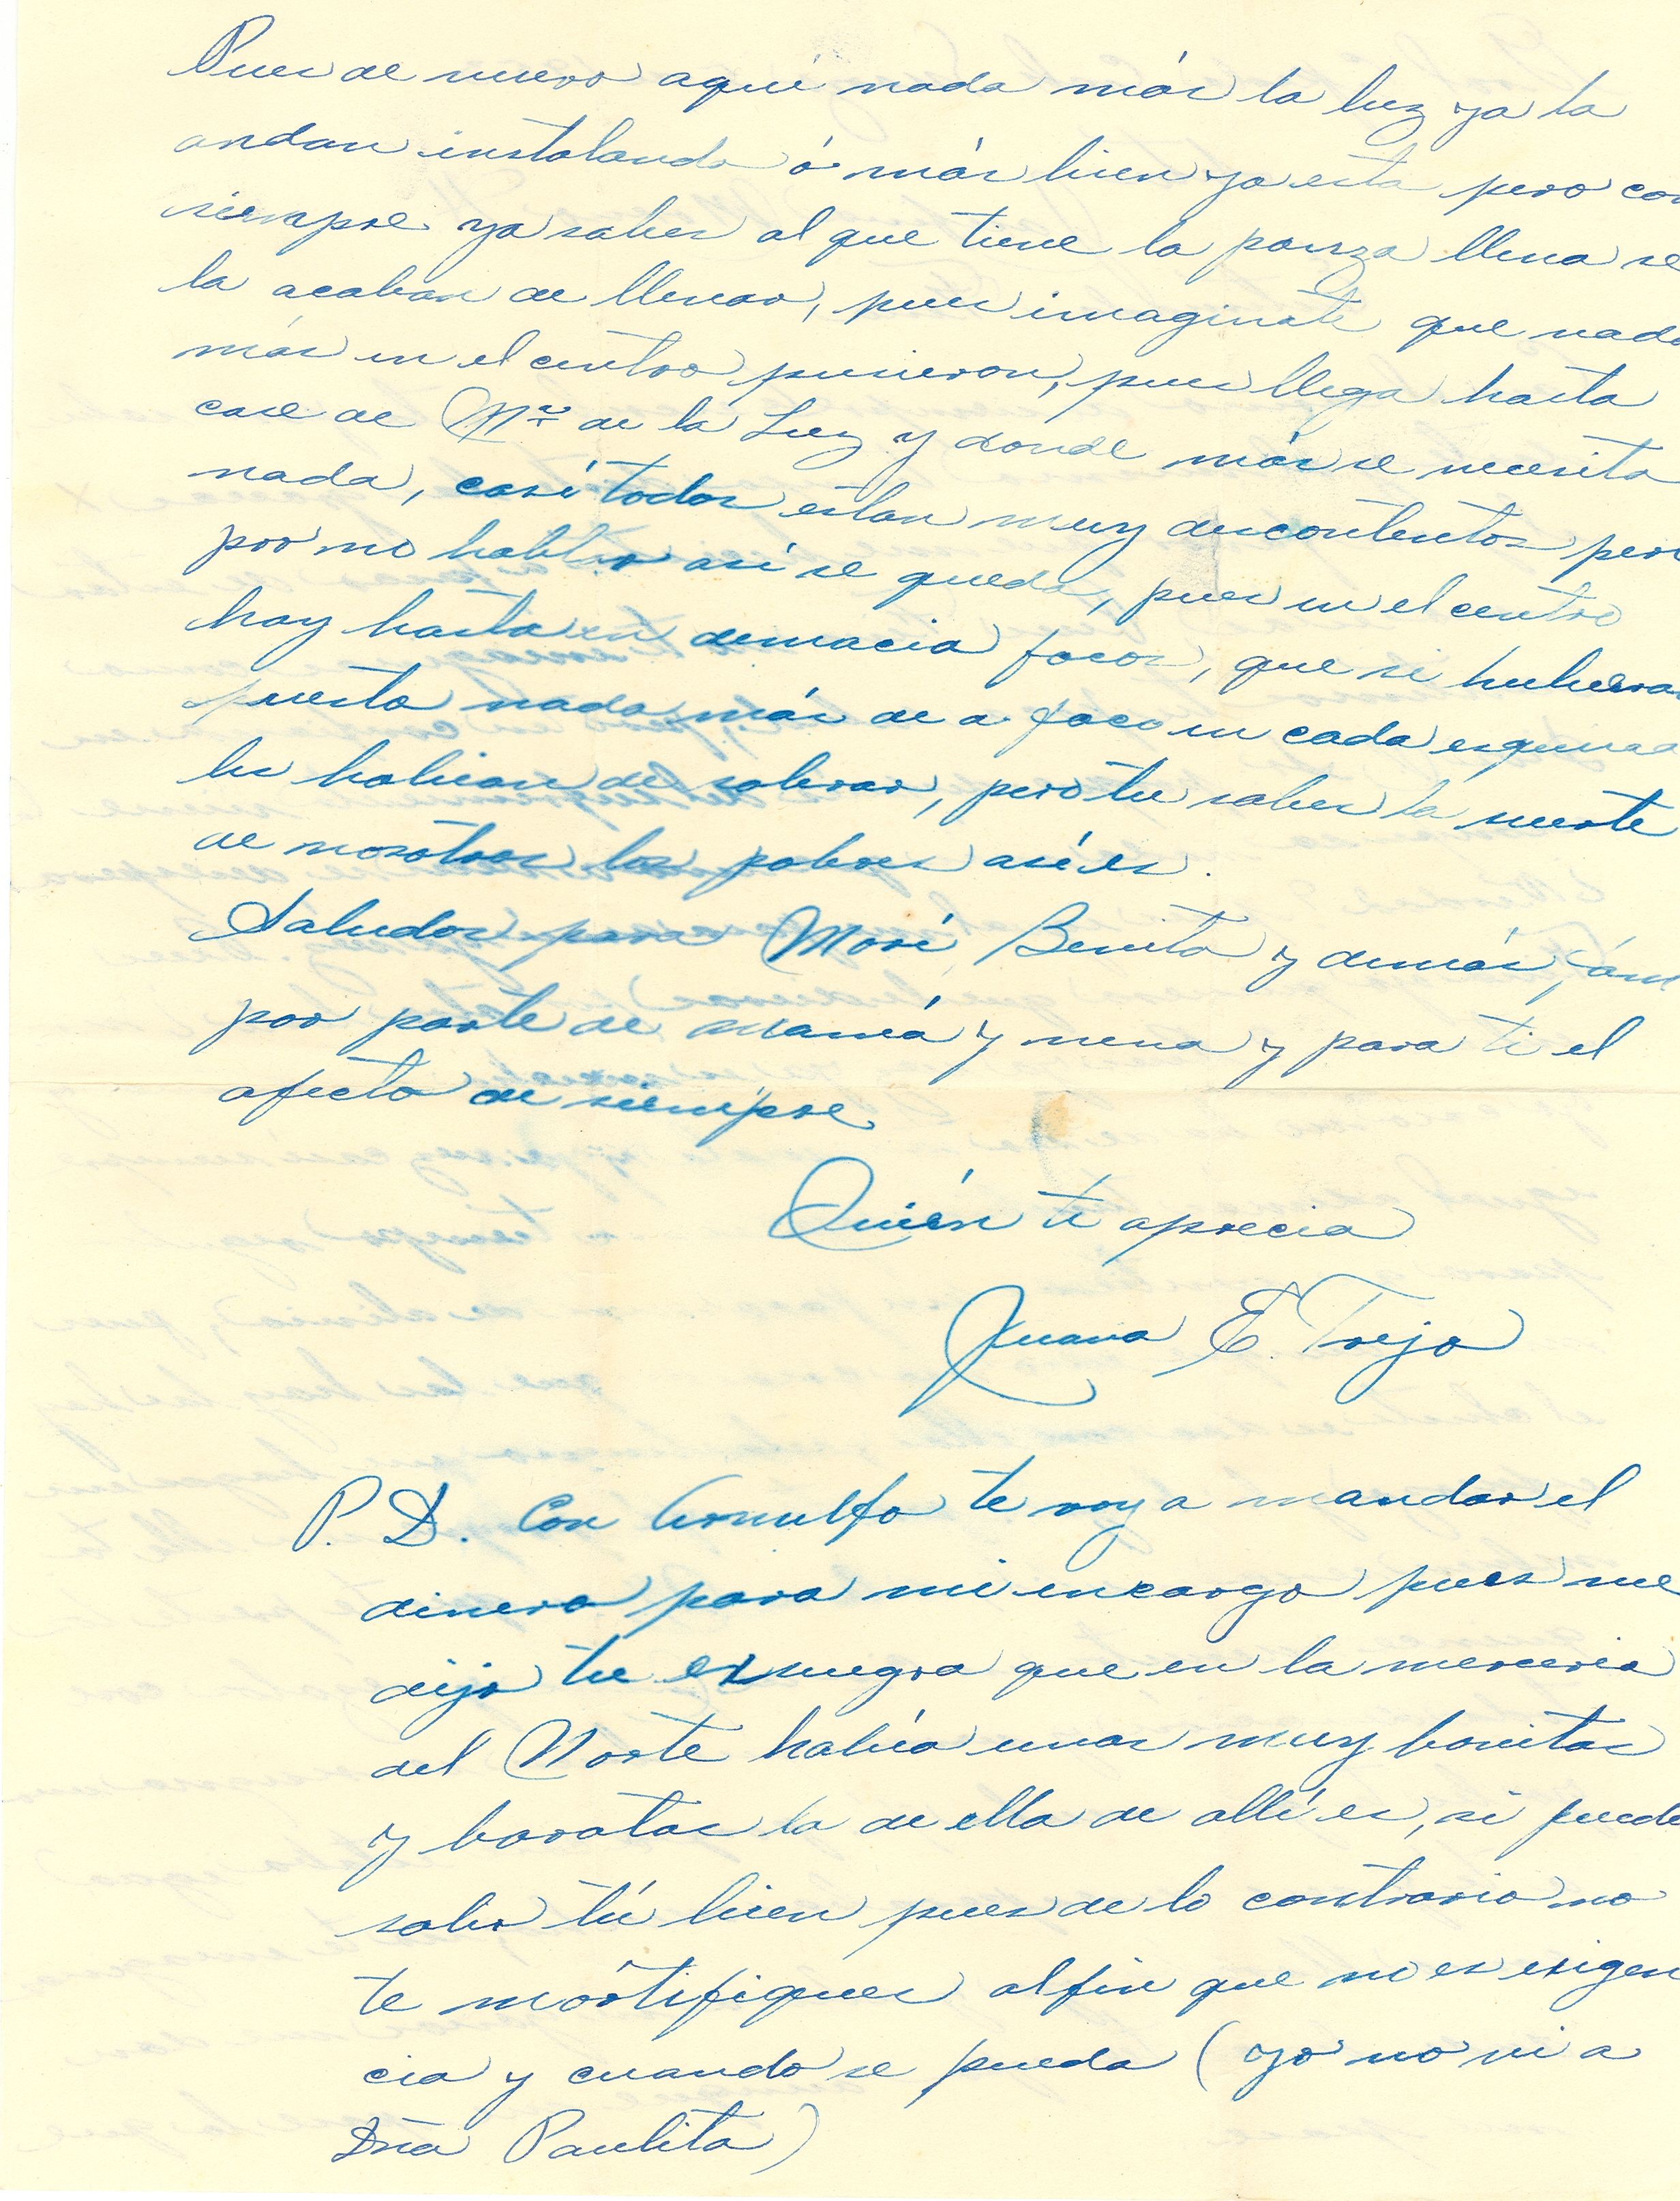 Pues de nuevo aquí nada más la luz ya la
andan instalando ó más bien ya esta pero com
siempre ya sabes al que tiene la panza llena se
la acaban de llenar, pues imaginate que nada
más en el centro pusieron, pues llega hasta
case de Mª de la Luz y donde más se necesita
nada, casí todos estan muy descontentos pero
por no hablar así se queda, pues en el centro
hay hasta en demacia focos, que si hubieran
puesto nada más de a foco en cada esquina
les habian de sobrar, pero tu sabes la suerte
de nosotros los pobres así es.
Saludos para Marí, Benita y demás fam
por parte de mamá y nena y para ti el
afecto de siempre
Quién te aprecia
Juana E. Trejo
P.D. Con Arnulfo te voy a mandar el
dinero para mi encargo pues me
dijo tu exsuegra que en la merceria
del Norte había unas muy bonitas
y baratas la de ella de allí es, si puede
sabr tú bien pues de lo contrario no
te mórtifiques alfin que no es exigen
cia y cuando se pueda (yo no ni a
Dña Paulita)